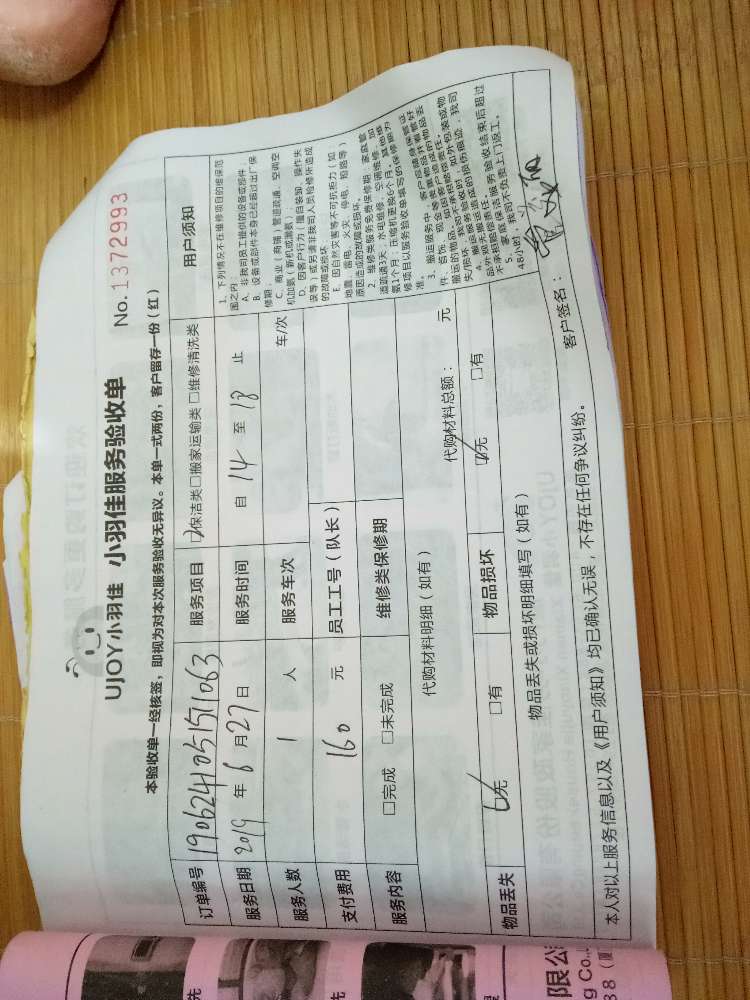 UJOY小羽佳 小羽佳服务验收单
No.1372993
本验收单一经核签，即视为对本次服务验收无异议。本单一式两份，客户留存一份（红）
订单编号 1906241051511063 服务项目 ☑保洁类□搬家运输类□维修清洗类
服务日期 2019 年 6 月 27 日 服务时间 自 14 至 18 止
服务人数 1 人 服务车次 车/次
支付费用 160 元 员工工号（队长）
服务内容 □完成 □未完成 维修类保修期
代购材料明细（如有） 代购材料总额： 元
物品丢失 ☑无 □有 物品损坏 ☑无 □有
物品丢失或损坏明细填写（如有）
用户须知
1、下列情况不在维修项目的维保范
围之内
A、非我司员工提供的设备或部件.
B、设备或部件本身已经超过出厂保
修期；
C、商业（商铺）管道疏通、空调空
机加氨（新机或漏氨）；
D、因客户行为（擅自装卸、操作失
误等）或另请非我司人员检修坏造成
的故障或损坏
E、因自然灾害等不可抗拒力（如
地震、雷电、火灾、停电、短路等）
原因造成的故障或损坏。
2、维修类服务免费保修期：家庭管
道疏通3天，水电维修、空调维修、加
氨1个月；压缩机更换6个月。其他维
修项目以服务验收单填写的保修期为
准。
3、搬运服务中，客户应随身保管证
件、首饰、现金等贵重物品并看管好
搬运的物品，如因客户造成的物品丢
失/损坏，我司不承担赔偿责任。
4、搬运服务验收时，如外包装或物
品外观无搬运造成的损伤痕迹，我司
不承担赔偿责任。
5、家庭保洁服务验收结束后超过
48小时，我司不负责上门返工。
本人对以上服务信息以及《用户须知》均已确认无误，不存在任何争议纠纷。
客户签名：
限公
g Co.,
38（厦